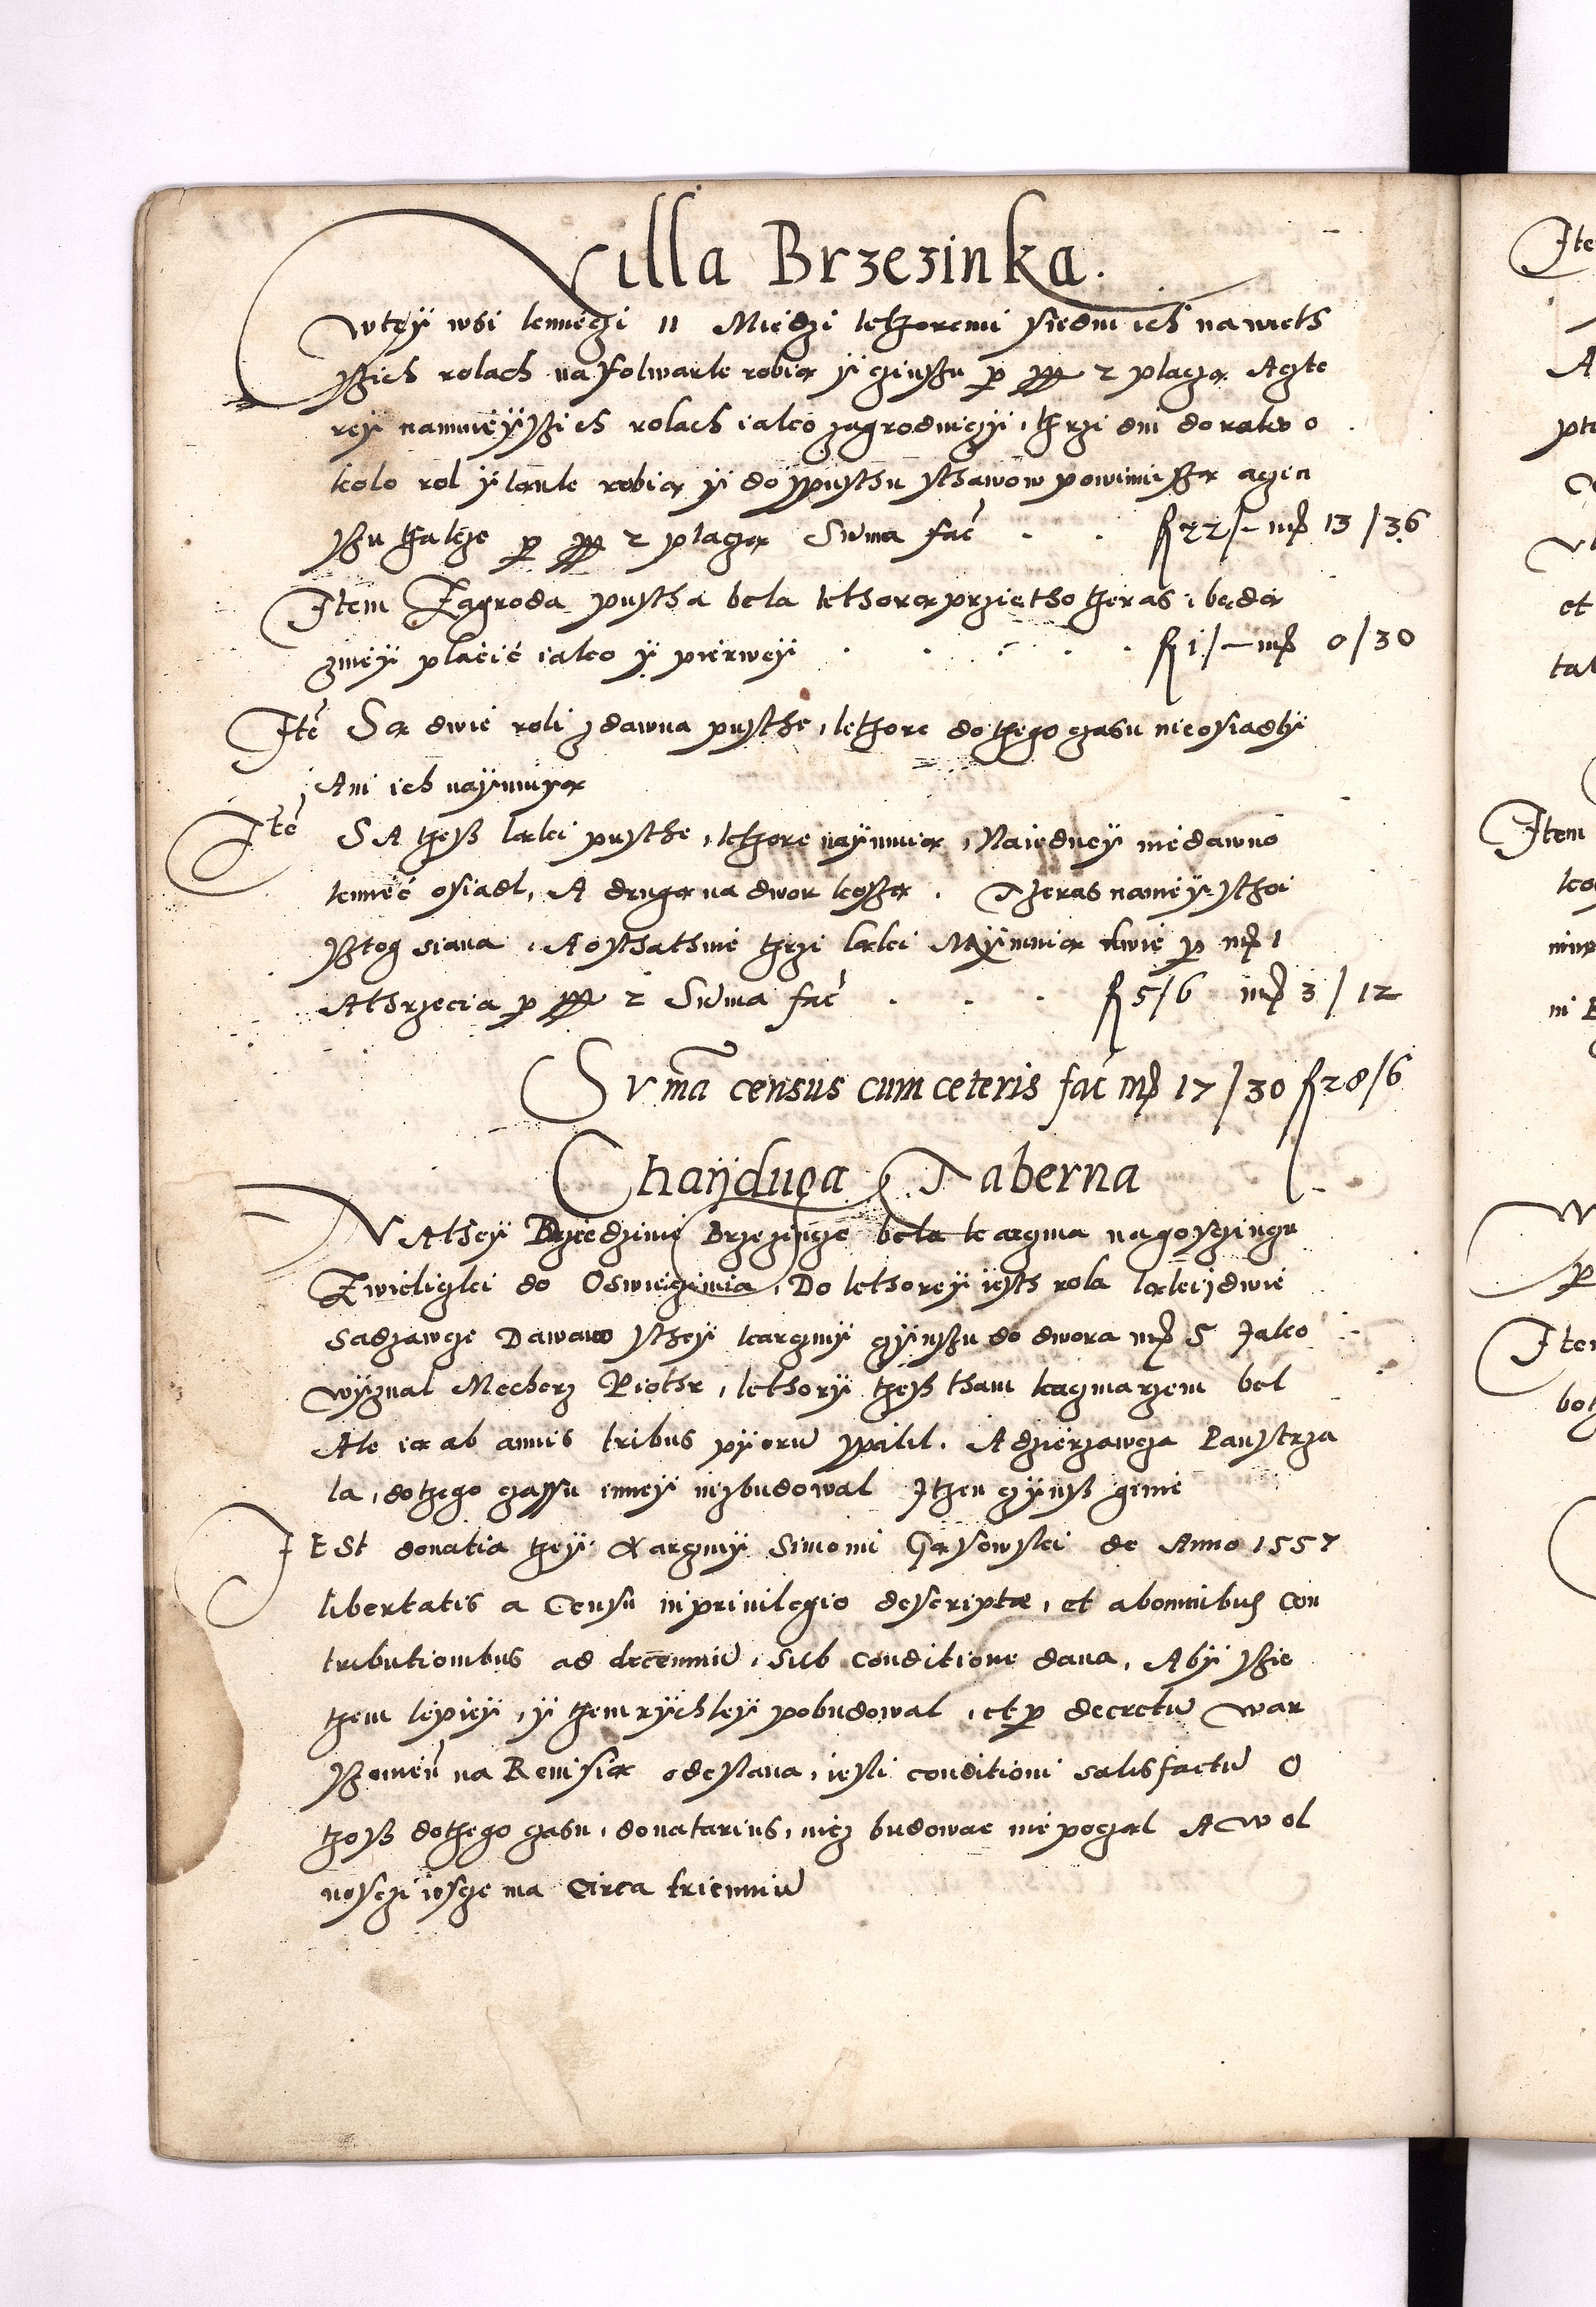 Villa Brzezinka.
Wtey wsi kmieczi 11 Miedzi kthoremi siedm ich na wieth
szich rolach na folwarke robią y czinszu per 2 placzą Aczte
rey namnieyszich rolach iako zagrodniczy, thrzi dni do roku o
kolo rol y lanke robią y do spusthu sthawow powinni szą aczin
szu thakze per 2 placzą Suma fac . . fl 22/– mr 13 / 36
Item Zagroda pustha bela kthorą przietho theras, będą
zniey placić iako y pierwey . . . . . fl 1/– mr 0/30
Ite Są dwie roli zdawna pusthe, kthore dothego czasu nieosiadly
Ani ich naymuyą
Ite SA thesz ląki pusthe, kthore naymuią, Naiedney niedawno
kmieć osiadl, A drugą na dwor koszą. Theras namieysthci
sztog siana, Aosthathnie thrzi ląki Naymuią dwie per mr 1
Athrzecia per 2 Suma fac . . . fl 5/6 mr 3 / 12
Suma census cum ceteris fac mr 17/30 fl 28/6
Chayduga Taberna
NAthey Dziedzinie Brzezincze bela karczma nagosczinczu
Zwieliczki do Oswieczimia, Do kthorey iesth rola ląki, dwie
Sadzawcze Dawano sthey karczmy czynszu do dwora mr 5 Jako
wyznal Mecherz Piothr, kthory thesz tham karczmarzem bel
Ale ią ab annis tribus pyoru spalil. Adzierzawcza Panstrza
la, dothego czassu inney niezbudowal Ithen czynsz ginie
JESt donatia they Karczmy Simoni Gąsowski de Anno 1557
libertatis a Censu in privilegio descriptae, et abomnibus Con
tributionibus ad decenniu, Sub Conditione dana, Aby szie
them lepiey, y them rychley pobudowal, et per decretu War
szowien na Remisią odeslana, iesli conditioni satisfactu O
thosz dothego czasu, donatarius, nicz budowac nie poczal A wol
nosczi iescze ma Circa trienniu